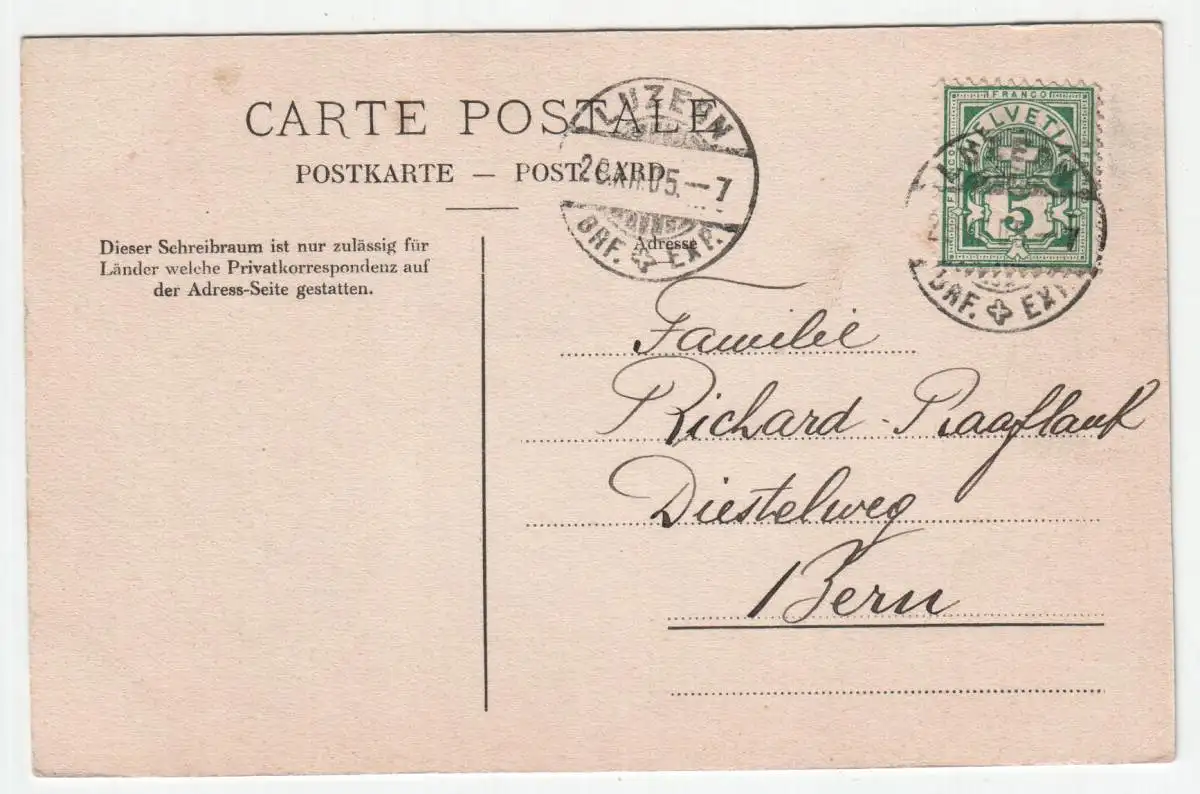 CARTE POSTALE
POSTKARTE — POST CARD
LUZERN
XII.05.-7
BRF. EXP.
FRANCO
HELVETIA
5
BRF. EXP.
Dieser Schreibraum ist nur zulässig für
Länder welche Privatkorrespondenz auf
der Adress-Seite gestatten.
Adresse
Familie
Richard-Raaflaub
Diestelweg
Bern